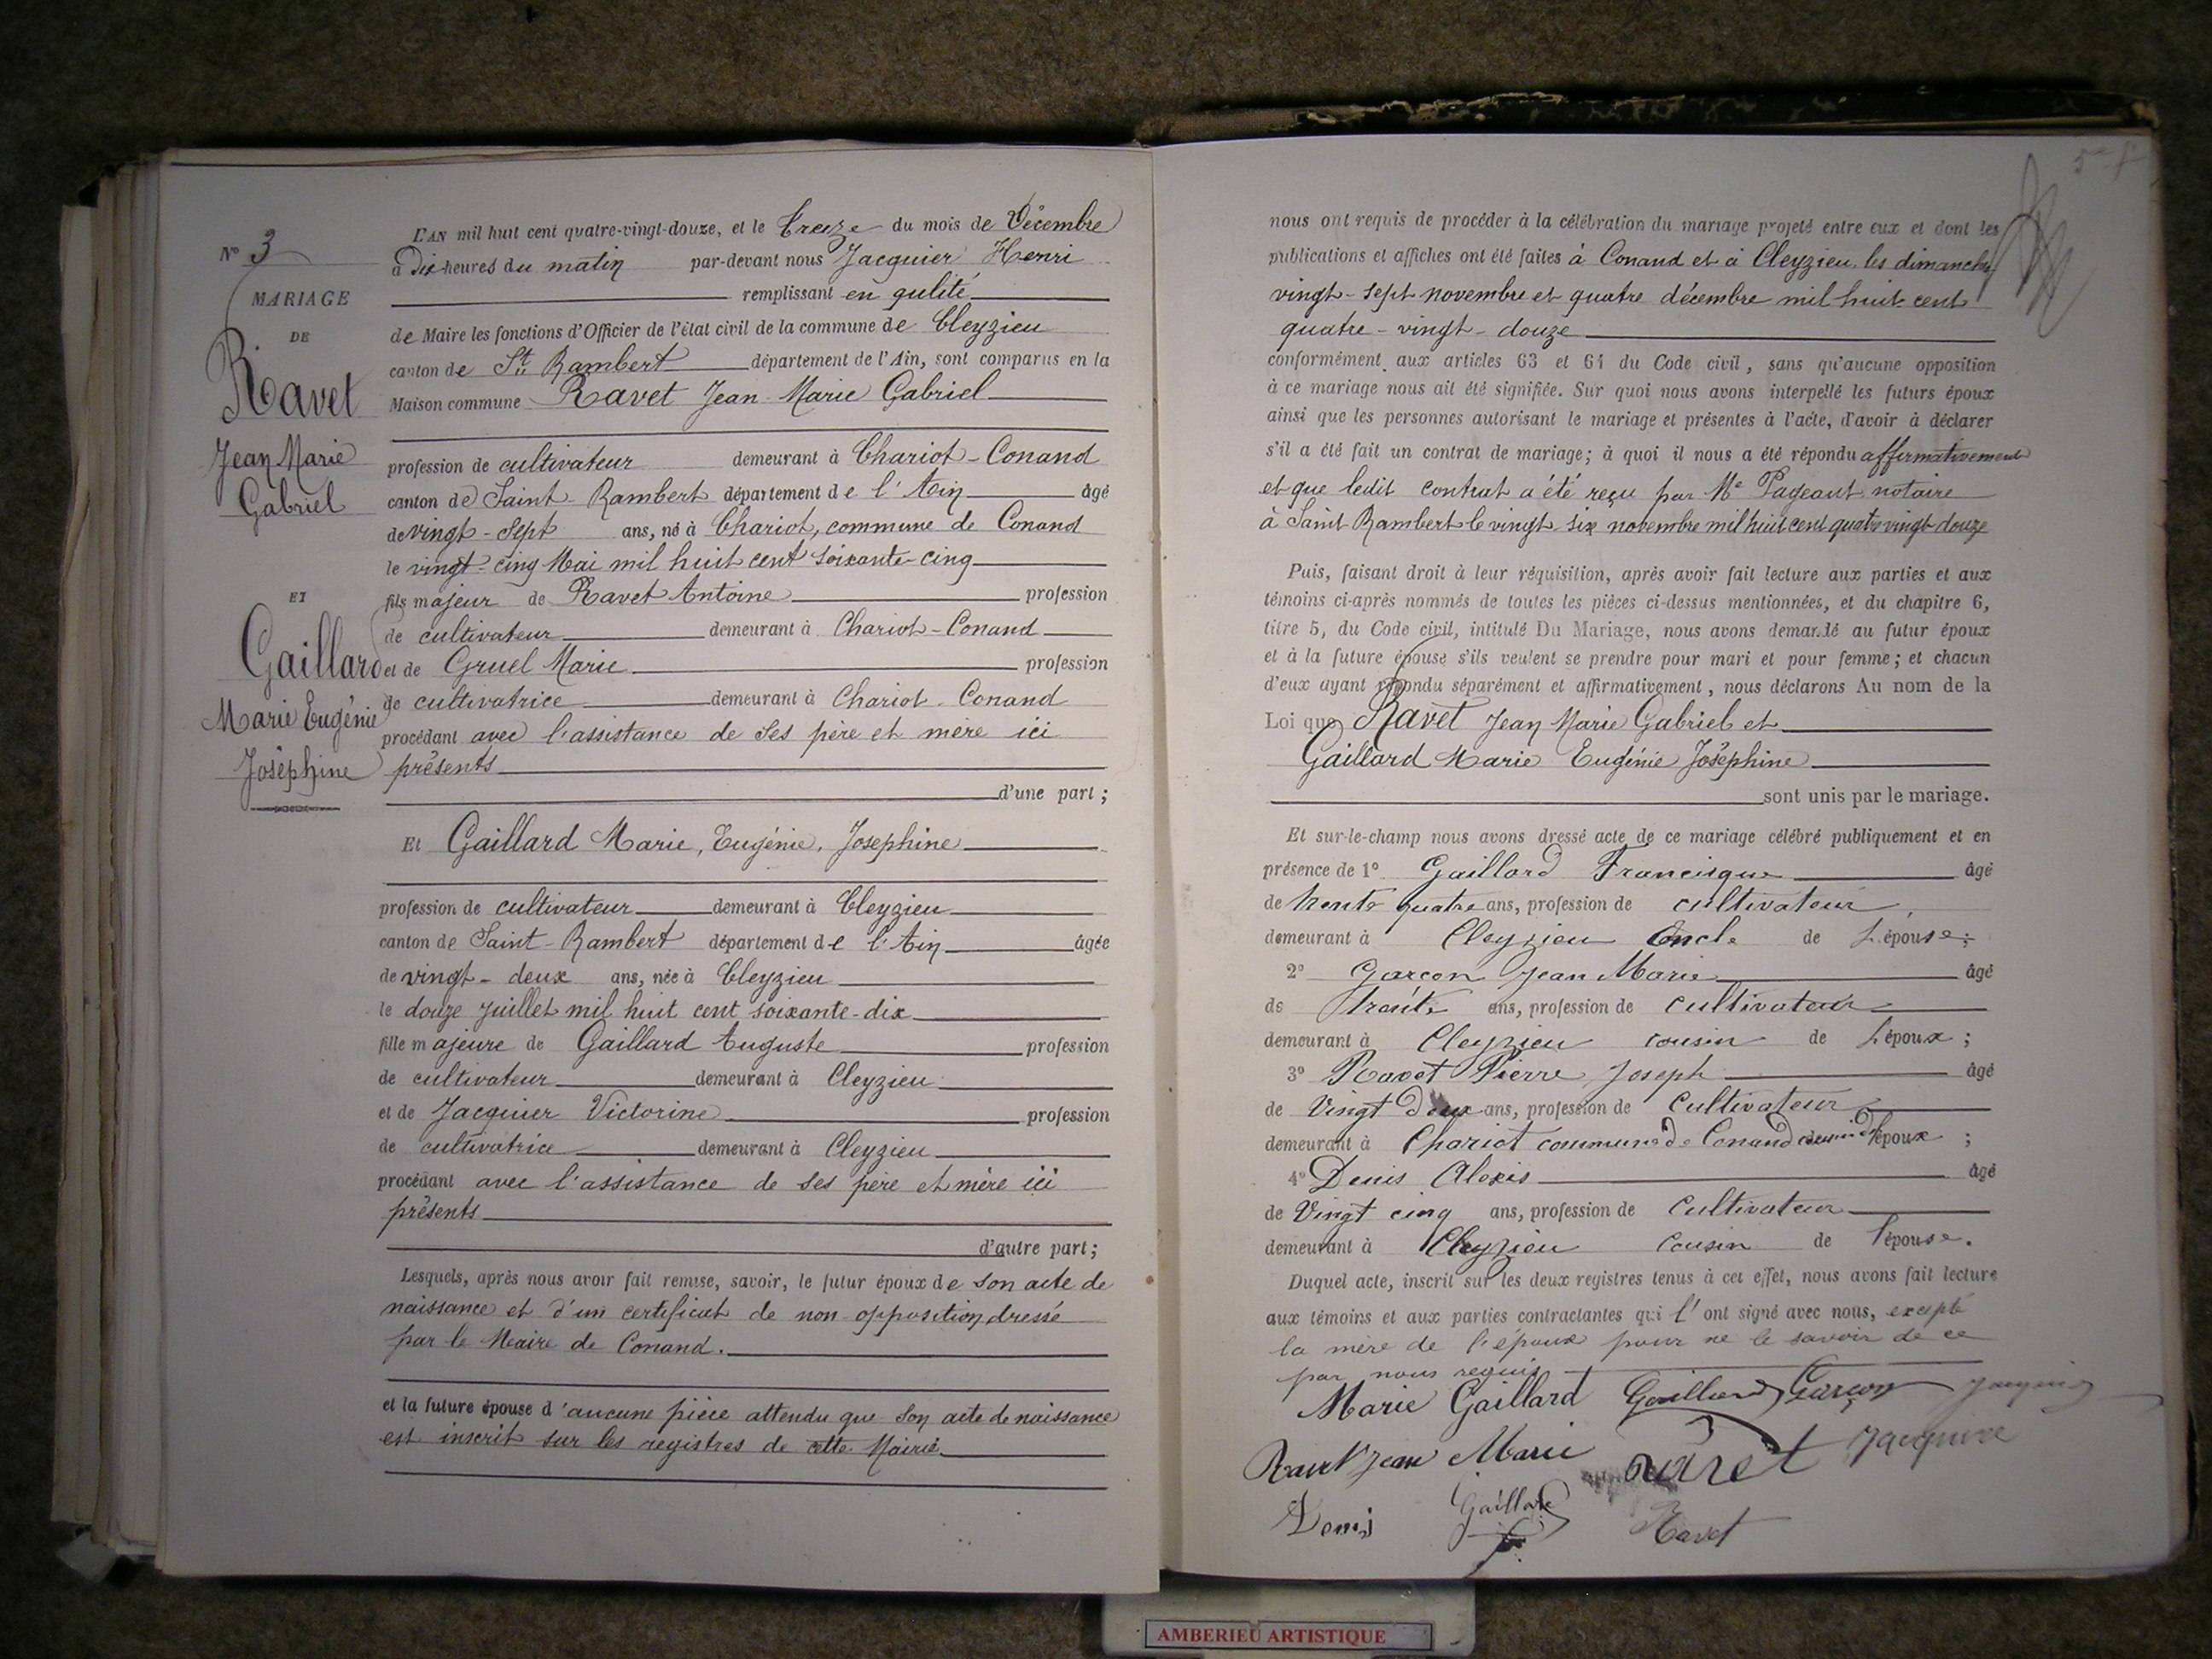 N° 3
MARIAGE
DE
Ravet
Jean Marie
Gabriel
ET
Gaillard
Marie Eugénie
Joséphine
L'AN mil huit cent quatre-vingt-douze, et le treize du mois de Décembre
à Dix heures du matin par-devant nous Jacquier Henri
remplissant en qulité
de Maire les fonctions d'Officier de l'état civil de la commune de Cleyzieu
canton de St Rambert département de l'Ain, sont comparus en la
Maison commune Ravet Jean-Marie Gabriel
profession de cultivateur demeurant à Chariot-Conand
canton de Saint-Rambert département de l'Ain âgé
de vingt-sept ans, né à Chariot, commune de Conand
le vingt-cinq Mai mil huit cent soixante-cinq
fils majeur de Ravet Antoine profession
de cultivateur demeurant à Chariot-Conand
et de Gruel Marie profession
de cultivatrice demeurant à Chariot-Conand
procédant avec l'assistance de ses père et mère ici
présents
d'une part;
Et Gaillard Marie, Eugénie, Josephine
profession de cultivateur demeurant à Cleyzieu
canton de Saint-Rambert département de l'Ain âgée
de vingt-deux ans, née à Cleyzieu
le douze juillet mil huit cent soixante-dix
fille majeure de Gaillard Auguste profession
de cultivateur demeurant à Cleyzieu
et de Jacquier Victorine profession
de cultivatrice demeurant à Cleyzieu
procédant avec l'assistance de ses père et mère ici
présents
d'autre part;
Lesquels, après nous avoir fait remise, savoir, le futur époux de son acte de
naissance et d'un certificat de non-opposition dressé
par le Maire de Conand.
et la future épouse d'aucune pièce attendu que son acte de naissance
est inscrit sur les registres de cette Mairie
nous ont requis de procéder à la célébration du mariage projeté entre eux et dont les
publications et affiches ont été faites à Conand et à Cleyzieu, les dimanches
vingt-sept novembre et quatre décembre mil huit cent
quatre-vingt-douze
conformément aux articles 63 et 64 du Code civil, sans qu'aucune opposition
à ce mariage nous ait été signifiée. Sur quoi nous avons interpellé les futurs époux
ainsi que les personnes autorisant le mariage et présentes à l'acte, d'avoir à déclarer
s'il a été fait un contrat de mariage; à quoi il nous a été répondu affirmativement
et que ledit contrat a été reçu par Me Pageaut, notaire
à Saint Rambert le vingt six novembre mil huit cent quatre vingt douze
Puis, faisant droit à leur réquisition, après avoir fait lecture aux parties et aux
témoins ci-après nommés de toutes les pièces ci-dessus mentionnées, et du chapitre 6,
titre 5, du Code civil, intitulé Du Mariage, nous avons demandé au futur époux
et à la future épouse s'ils veulent se prendre pour mari et pour femme; et chacun
d'eux ayant répondu séparément et affirmativement, nous déclarons Au nom de la
Loi que Ravet Jean Marie Gabriel et
Gaillard Marie Eugénie Joséphine
sont unis par le mariage.
Et sur-le-champ nous avons dressé acte de ce mariage célébré publiquement et en
présence de 1° Gaillard Francisque âgé
de trente quatre ans, profession de cultivateur,
demeurant à Cleyzieu Oncle de l'épouse;
2° Garçon Jean Marie âgé
de trente ans, profession de cultivateur
demeurant à Cleyzieu cousin de l'époux;
3° Ravet Pierre Joseph âgé
de Vingt Deux ans, profession de Cultivateur
demeurant à Chariot commune de Conand l'époux;
4° Denis Alexis âgé
de Vingt cinq ans, profession de Cultivateur
demeurant à Cleyzieu Cousin de l'épouse.
Duquel acte, inscrit sur les deux registres tenus à cet effet, nous avons fait lecture
aux témoins et aux parties contractantes qui l'ont signé avec nous, excepté
la mère de l'époux pour ne le savoir de ce
par nous requis
Marie Gaillard Gaillard Garçon
Ravet Jean Marie Ravet Jacquier
Denis Gaillard Ravet
AMBERIEU ARTISTIQUE